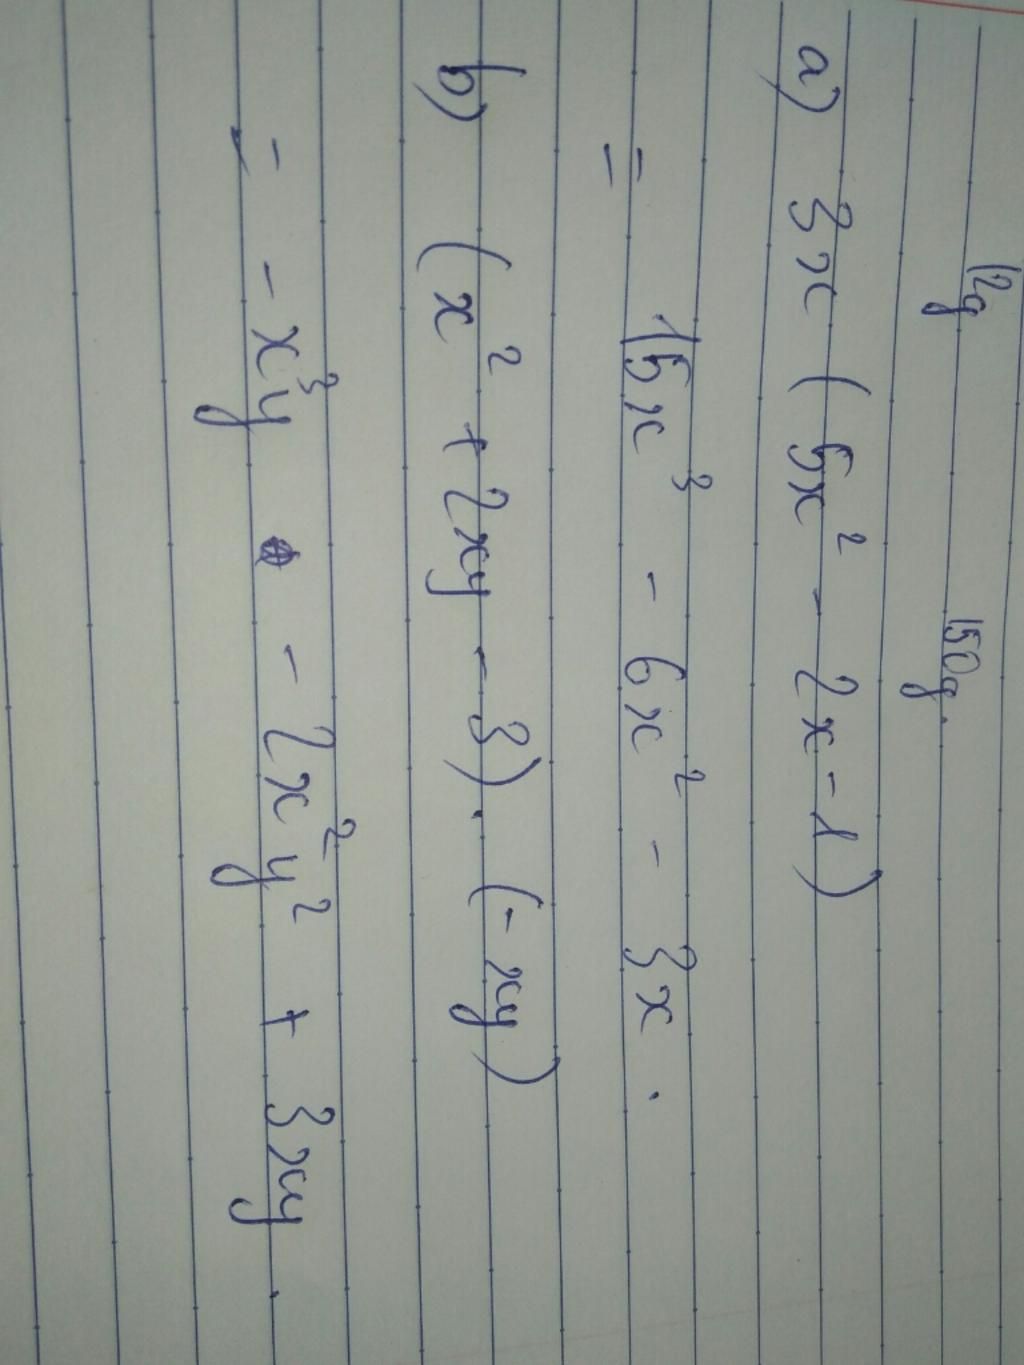 12g 150g.
a) 3x (5x² - 2x - 1)
= 15x³ - 6x² - 3x.
b) (x² + 2xy - 3). (-xy)
= -x³y - 2x²y² + 3xy.